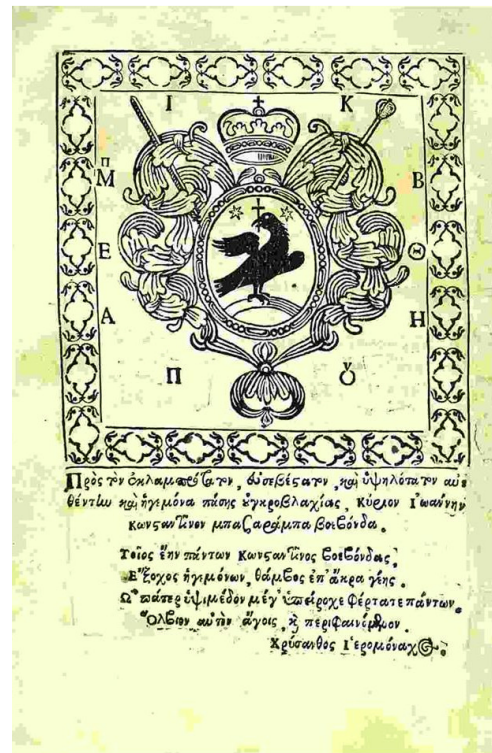 Ι Κ
Μπ Β
Ε Θ
Α Η
Π Ȣ
Πρὸς τὸν ἐκλαμπρότατον, εὐσεβέϛατον, καὶ ὑψηλότατον αὐ
θέντην καὶ ἡγεμόνα πάσης ȣγκροβλαχίας, Κύριον Ἰωάννην
Κωνϛαντῖνον μπασαράμπα βοεβόνδα.
Τοῖος ἔην πάντων Κωνϛαντῖνος βοεβόνδας
Ἔξοχος ἡγεμόνων, θάμβος ἐπ' ἄκρα γέης.
Ὦ πάτερ ὑψιμέδον μέγ' ὑπείροχε φέρτατε πάντων,
Ὄλβιον αὐτὸν ἄγοις, κ περιφαινόμενον.
Χρύσανθος Ἱερομόναχος.